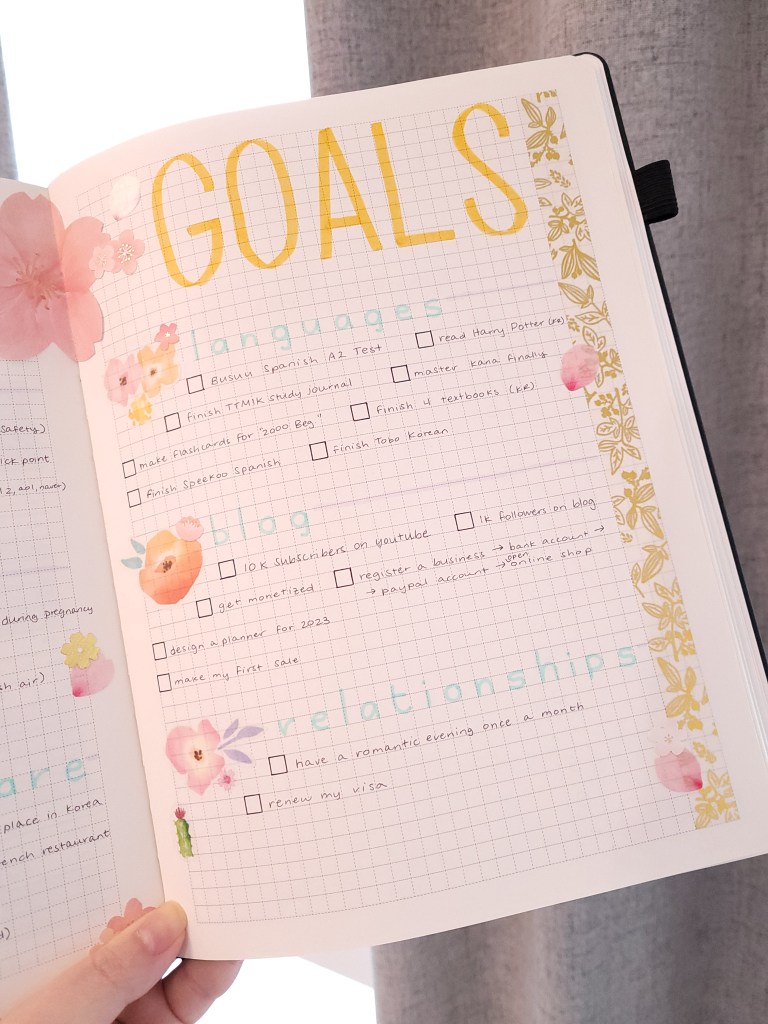 safety)
ick point
12, aol, naver)
during pregnancy
sh air)
are
place in Korea
ench restaurant
GOALS
languages
Busuu Spanish A2 Test
read Harry Potter (KR)
finish TTMIK study journal
master kana finally
make flashcards for "2000 Beg"
finish 4 textbooks (KR)
finish Speekoo Spanish
finish Tobo Korean
blog
10K subscribers on youtube
1K followers on blog
get monetized
register a business → bank account →
→ paypal account → open online shop
design a planner for 2023
make my first sale
relationships
have a romantic evening once a month
renew my visa